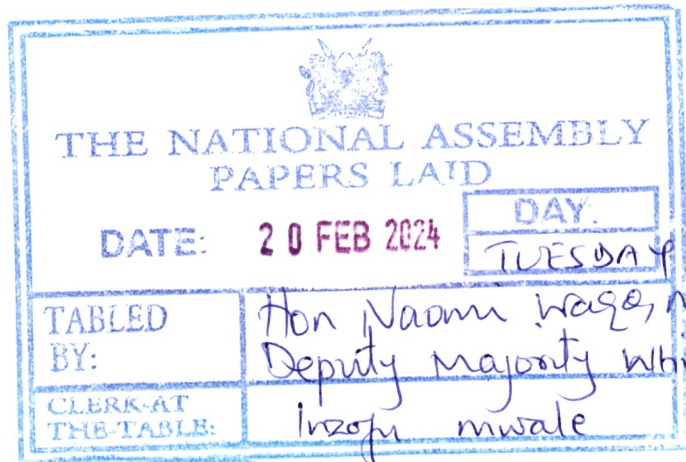 THE NATIONAL ASSEMBLY
PAPERS LAID
DATE: 20 FEB 2024
DAY.
TUESDAY
TABLED BY:
Hon Naomi Waqo,
Deputy Majority Whi
CLERK-AT THE-TABLE:
Inzofu mwale